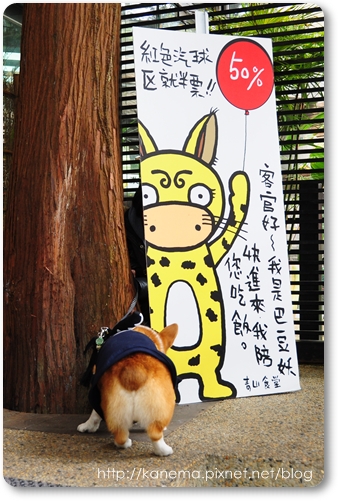 紅色汽球
区就半票!!
50%
客官好~我是巴豆妖
快進來我陪
您吃飯。
青山食堂
http://kanema.pixnet.net/blog